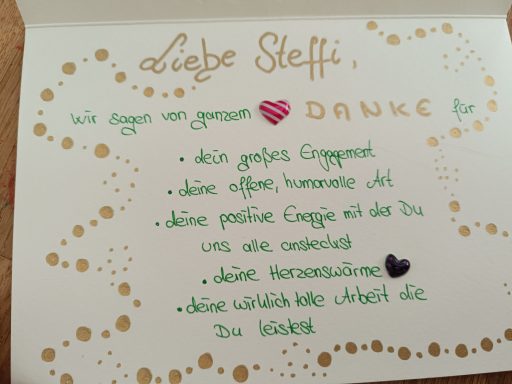 Liebe Steffi,
wir sagen von ganzem DANKE für
• dein großes Engagement
• deine offene, humorvolle Art
• deine positive Energie mit der Du
uns alle ansteckst
• deine Herzenswärme
• deine wirklich tolle Arbeit die
Du leistest